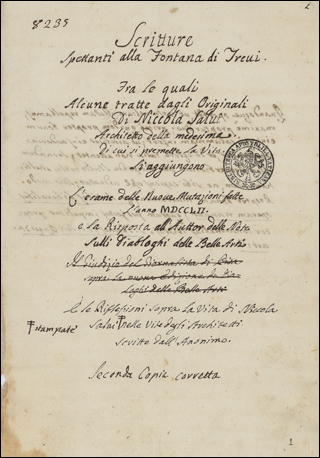 8235
Scritture
Spettanti alla Fontana di Trevi.
Fra le quali
Alcune tratte dagli Originali
Di Niccola Salvi
Architetto della medesima
di cui si premette la Vita
Si aggiungono
L'esame delle Nuove Mutazioni fatte
l'anno MDCCLII
e la Risposta all'Auttor delle Note
Sulli Dialoghi delle Belle Arti
Il Giudizio del Giornalista di
sopra la nuova Edizione de Dia-
loghi delle Belle Arti
E le Riflessioni sopra la Vita di Niccola
stampate Salvi nelle Vite degli Architetti
scritte dall'Anonimo.
Seconda Copia corretta
1